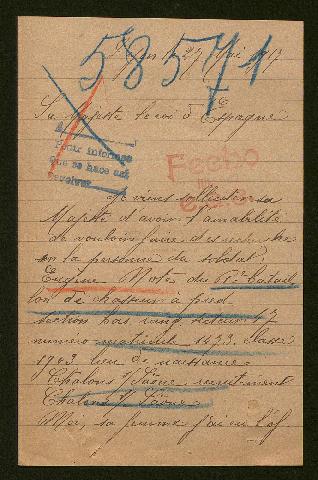 58571
Dijon le 27 Mai 1917
Sa Majesté le roi d'Espagne
Pedir informes
que se hace así
Fecho
Je viens solliciter sa
Majesté d'avoir l'amabilité
de vouloir faire des recherches
sur la personne du soldat
Eugène du Batail
lon de chasseurs à pied
section hors rang secteur
numéro matricule 1493 Classe
1903 lieu de naissance
Chalons s/ Saône recrutement
Chalons s/ Saône
Moi, sa femme j'ai eu l'af